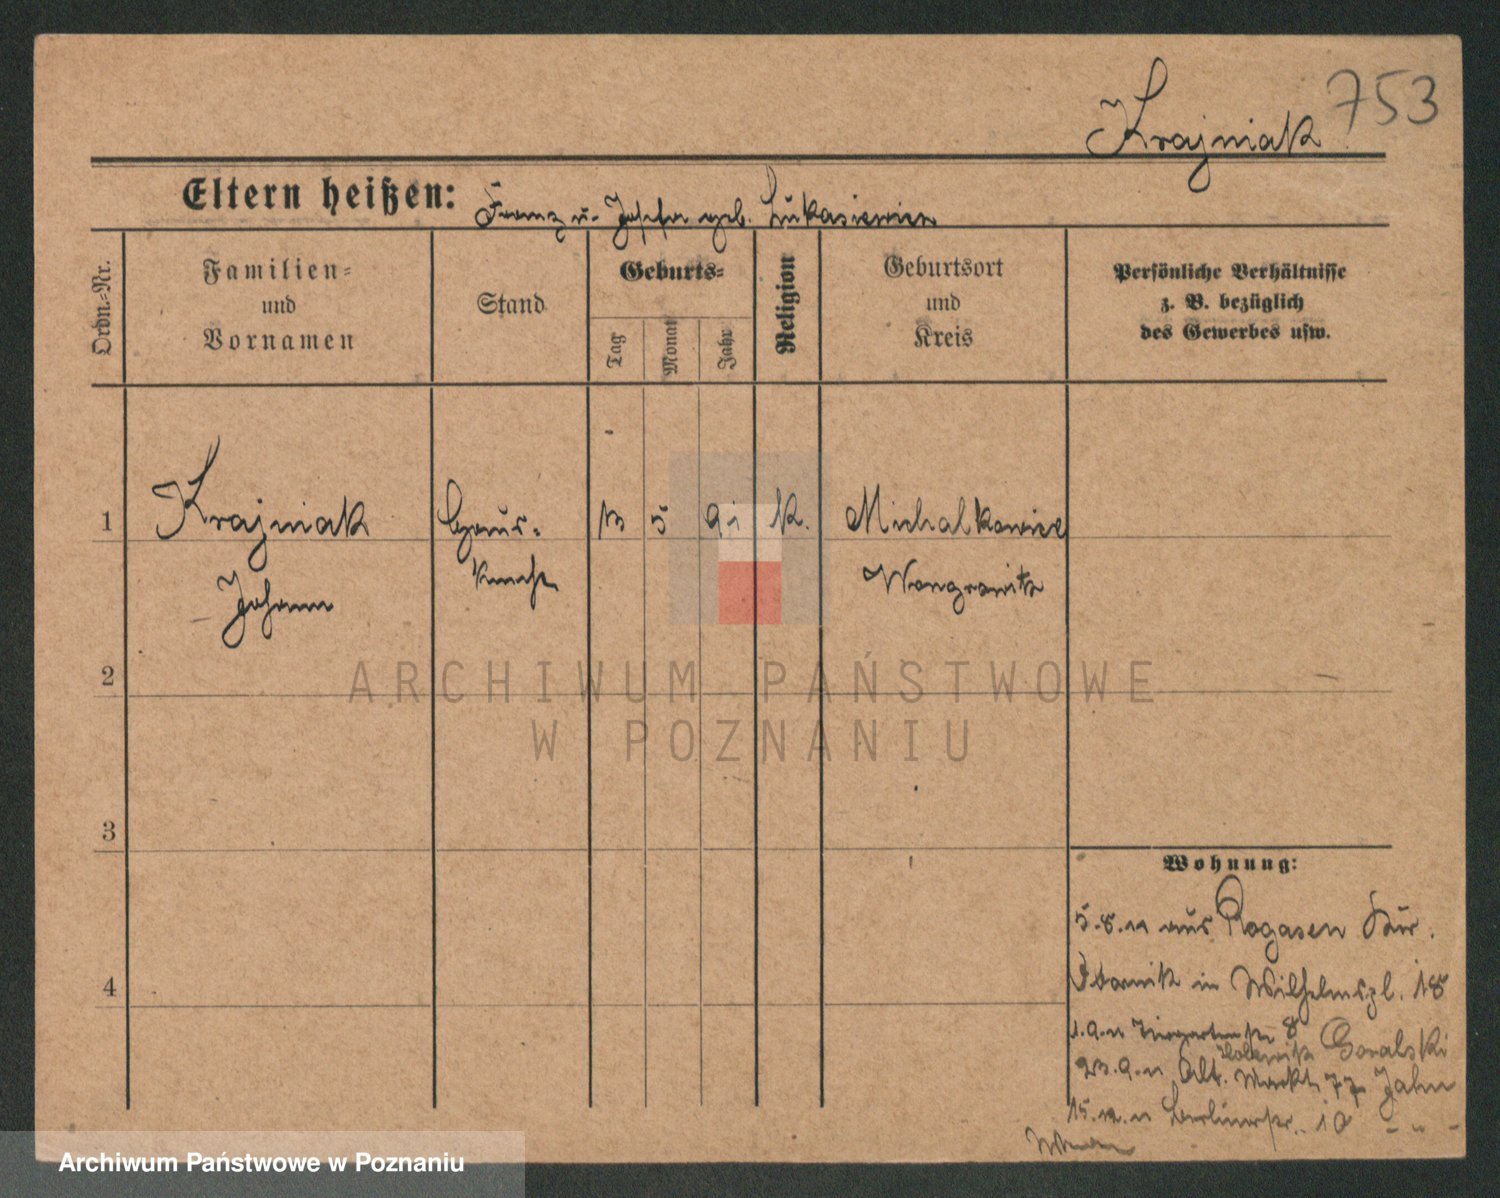 Krajniak 753
Eltern heißen: Franz u. Josefa geb. Lukasiewicz
Ordn.-Nr.
Familien- und Vornamen
Stand
Geburts-
Tag
Monat
Jahr
Religion
Geburtsort und Kreis
Persönliche Verhältnisse
z. B. bezüglich
des Gewerbes usw.
1 Krajniak Haus- 13 5 91 K. Michalkowice
Johann knecht Wongrowitz
2
3
4
Wohnung:
5.8.11 aus Rogasen
in Wilhelmspl. 18
1.9.11 Tiergartenstr 8
Goralski
23.9.11 Alt. Markt 77 Jahn
15.12.11 Berlinerstr. 10 - " -
ARCHIWUM PAŃSTWOWE
W POZNANIU
Archiwum Państwowe w Poznaniu